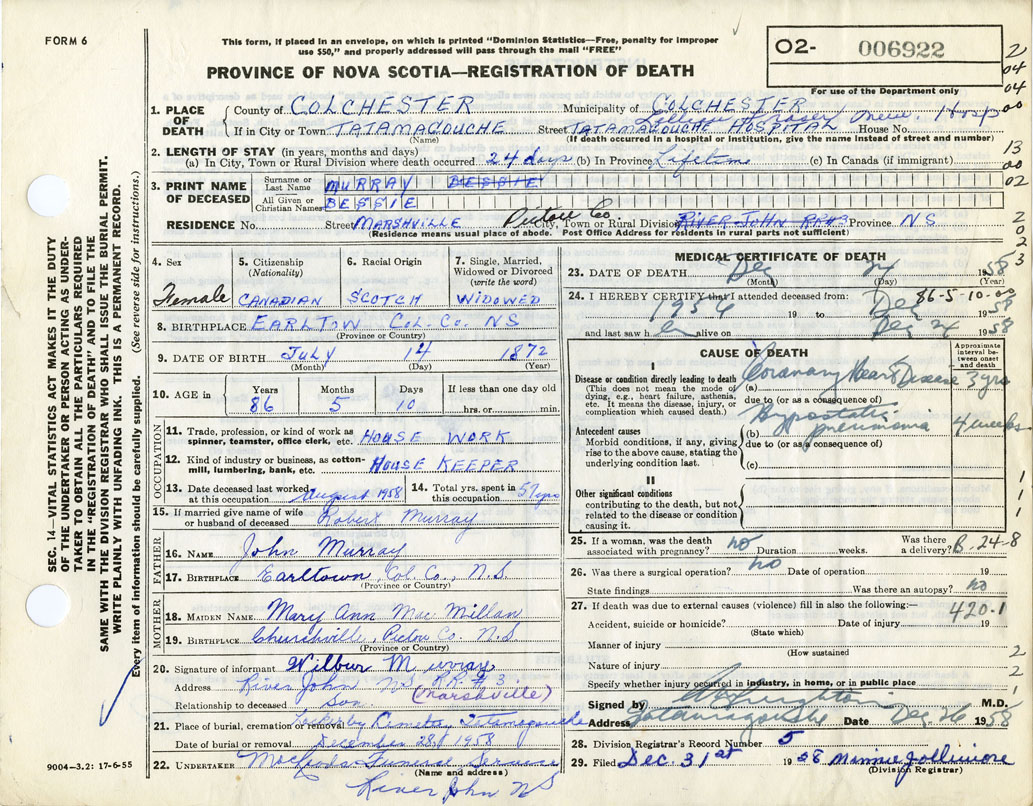 FORM 6
This form, if placed in an envelope, on which is printed "Dominion Statistics—Free, penalty for improper
use $50," and properly addressed will pass through the mail "FREE"
PROVINCE OF NOVA SCOTIA—REGISTRATION OF DEATH
O2- 006922
For use of the Department only
2
04
04
00
13
00
02
2
0
2
3
1. PLACE OF DEATH
County of COLCHESTER Municipality of COLCHESTER
If in City or Town TATAMAGOUCHE Street TATAMAGOUCHE HOSPITAL House No.
Hosp
(Name) (If death occurred in a hospital or institution, give the name instead of street and number)
2. LENGTH OF STAY (in years, months and days)
(a) In City, Town or Rural Division where death occurred 24 days (b) In Province Lifetime (c) In Canada (if immigrant)
3. PRINT NAME OF DECEASED
Surname or Last Name MURRAY BESSIE
All Given or Christian Names BESSIE
RESIDENCE No. Street MARSHVILLE Pictou Co. City, Town or Rural Division RIVER JOHN RR#3 Province NS
(Residence means usual place of abode. Post Office Address for residents in rural parts not sufficient)
4. Sex Female
5. Citizenship (Nationality) CANADIAN
6. Racial Origin SCOTCH
7. Single, Married, Widowed or Divorced (write the word) WIDOWED
8. BIRTHPLACE EARLTOWN COL. CO. NS
(Province or Country)
9. DATE OF BIRTH July 14 1872
(Month) (Day) (Year)
10. AGE in Years 86 Months 5 Days 10 If less than one day old hrs. or min.
OCCUPATION
11. Trade, profession or kind of work as spinner, teamster, office clerk, etc. HOUSE WORK
12. Kind of industry or business, as cotton-mill, lumbering, bank, etc. HOUSE KEEPER
13. Date deceased last worked at this occupation August 1958
14. Total yrs. spent in this occupation 57 yrs
15. If married give name of wife or husband of deceased Robert Murray
FATHER
16. NAME John Murray
17. BIRTHPLACE Earltown, Col. Co., N.S.
(Province or Country)
MOTHER
18. MAIDEN NAME Mary Ann MacMillan
19. BIRTHPLACE Churchville, Pictou Co. N.S
(Province or Country)
20. Signature of informant Wilbur Murray
Address River John NS RR.#3. (Marshville)
Relationship to deceased Son.
21. Place of burial, cremation or removal Tatamagouche
Date of burial or removal December 28th 1958
22. UNDERTAKER Funeral Service
(Name and address)
River John NS
MEDICAL CERTIFICATE OF DEATH
23. DATE OF DEATH Dec 24 1958
(Month) (Day) (Year)
24. I HEREBY CERTIFY that I attended deceased from:
86-5-10-00
1956 19 to Dec 1958
and last saw her alive on Dec 24 1958
CAUSE OF DEATH
Approximate interval between onset and death
I
Disease or condition directly leading to death
(This does not mean the mode of dying, e.g., heart failure, asthenia, etc. It means the disease, injury, or complication which caused death.)
(a) Coronary Heart Disease 3 yrs
due to (or as a consequence of)
Antecedent causes
Morbid conditions, if any, giving rise to the above cause, stating the underlying condition last.
(b) Hypostatic pneumonia 4 weeks
due to (or as a consequence of)
(c)
II
Other significant conditions
contributing to the death, but not related to the disease or condition causing it.
1
1
1
25. If a woman, was the death associated with pregnancy? no Duration weeks. Was there a delivery? B. 24-8
26. Was there a surgical operation? no Date of operation 19
State findings Was there an autopsy? no
27. If death was due to external causes (violence) fill in also the following:—
420.1
Accident, suicide or homicide? Date of injury 19
(State which)
Manner of injury
(How sustained
Nature of injury
Specify whether injury occurred in industry, in home, or in public place
2
2
1
Signed by M.D.
Address Tatamagouche Date Dec 26 1958
28. Division Registrar's Record Number 5
29. Filed Dec. 31st 1958 Minnie Jollimore
(Division Registrar)
SEC. 14—VITAL STATISTICS ACT MAKES IT THE DUTY
OF THE UNDERTAKER OR PERSON ACTING AS UNDER-
TAKER TO OBTAIN ALL THE PARTICULARS REQUIRED
IN THE "REGISTRATION OF DEATH" AND TO FILE THE
SAME WITH THE DIVISION REGISTRAR WHO SHALL ISSUE THE BURIAL PERMIT.
WRITE PLAINLY WITH UNFADING INK. THIS IS A PERMANENT RECORD.
Every item of information should be carefully supplied. (See reverse side for instructions.)
9004—3.2: 17-6-55